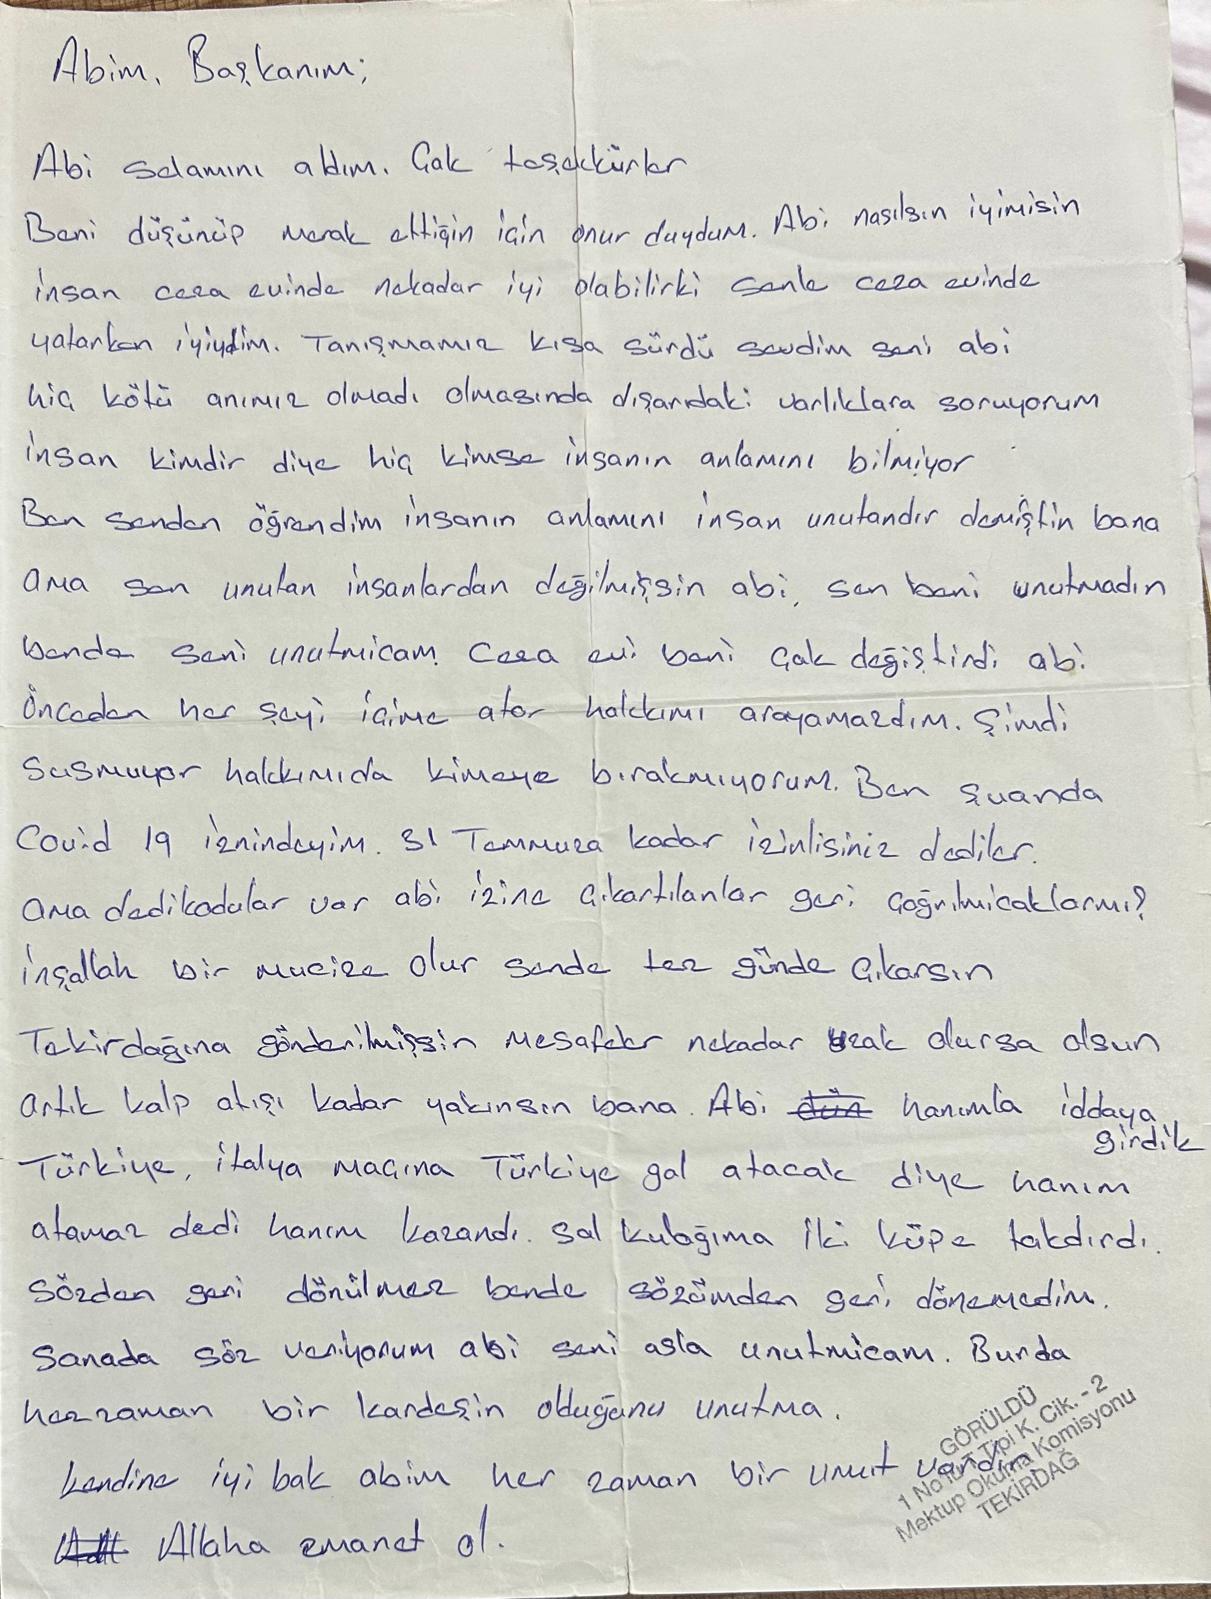 Abim, Başkanım;
Abi selamını aldım. Çok teşekkürler
Beni düşünüp merak ettiğin için onur duydum. Abi nasılsın iyimisin
insan ceza evinde nekadar iyi olabilirki senle ceza evinde
yatarken iyiydim. Tanışmamız kısa sürdü sevdim seni abi
hiç kötü anımız olmadı olmasında dışarıdaki varlıklara soruyorum
insan kimdir diye hiç kimse insanın anlamını bilmiyor
Ben senden öğrendim insanın anlamını insan unutandır demiştin bana
ama sen unutan insanlardan değilmişsin abi, sen beni unutmadın
bende seni unutmicam. Ceza evi beni çok değiştirdi abi.
Önceden her şeyi içime atar hakkımı arayamazdım. Şimdi
susmuyor hakkımıda kimeye bırakmıyorum. Ben şuanda
Covid 19 iznindeyim. 31 Temmuza kadar izinlisiniz dediler.
ama dedikodular var abi izine çıkartılanlar geri çoğrılmicaklarmı?
inşallah bir mucize olur sende tez günde çıkarsın
Tekirdağına gönderilmişsin mesafeler nekadar uzak olursa olsun
artık kalp atışı kadar yakınsın bana. Abi dün hanımla iddaya girdik
Türkiye, italya maçına Türkiye gol atacak diye hanım
atamaz dedi hanım kazandı. Sol kulağıma iki küpe takdırdı.
Sözden geri dönülmez bende sözümden geri dönemedim.
Sanada söz veriyorum abi seni asla unutmicam. Burda
herzaman bir kardeşin olduğunu unutma.
kendine iyi bak abim her zaman bir umut vardır
Allaha emanet ol.
GÖRÜLDÜ
1 No'lu T Tipi K. Cik. - 2
Mektup Okuma Komisyonu
TEKİRDAĞ